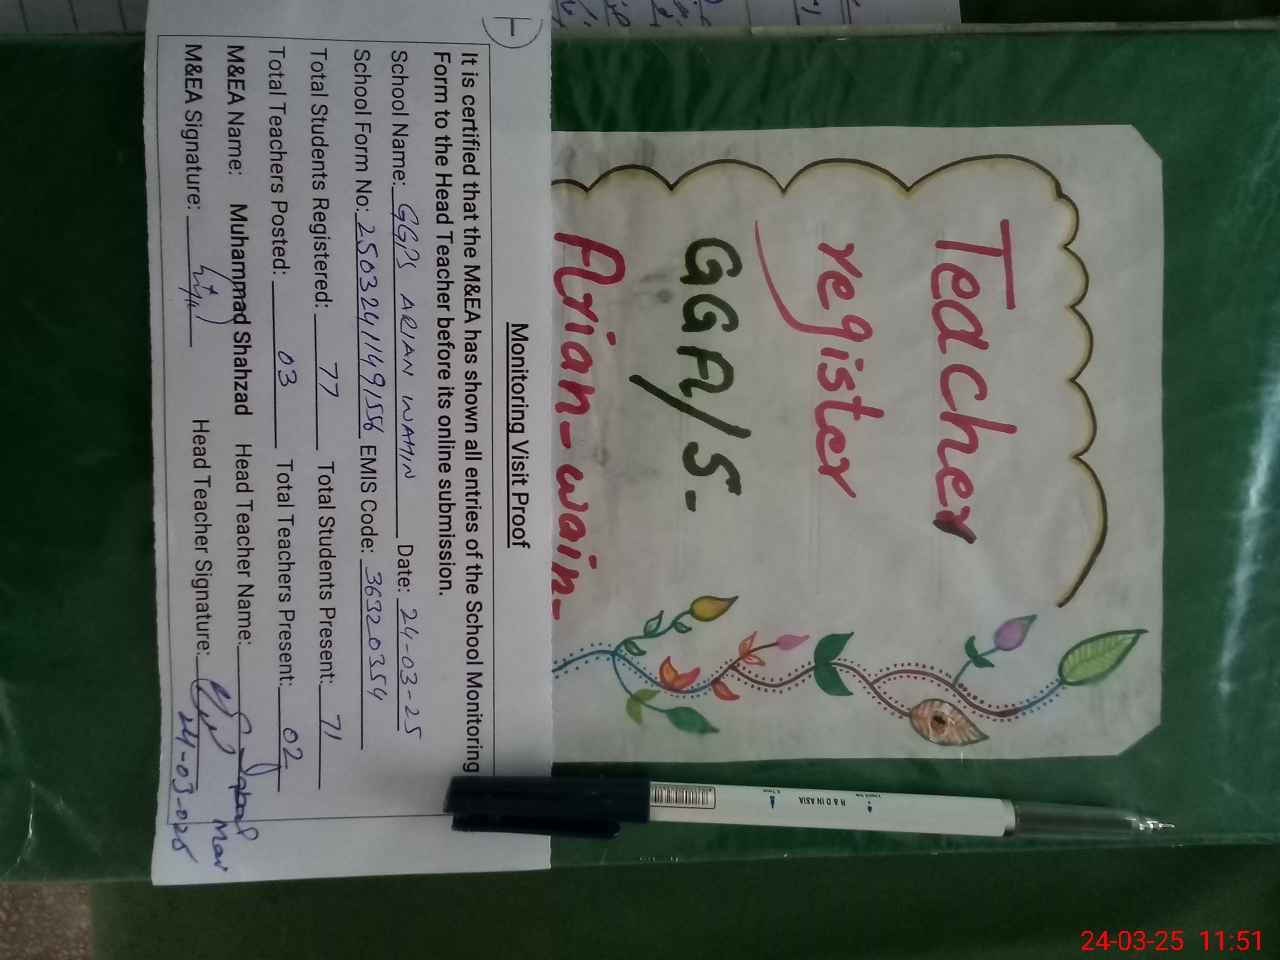 Teacher
register
GGA/S-
Arian-wain-
1
Monitoring Visit Proof
It is certified that the M&EA has shown all entries of the School Monitoring
Form to the Head Teacher before its online submission.
School Name: GGPS ARIAN WAHIN Date: 24-03-25
School Form No: 2503241149156 EMIS Code: 36320354
Total Students Registered: 77 Total Students Present: 71
Total Teachers Posted: 03 Total Teachers Present: 02
M&EA Name: Muhammad Shahzad Head Teacher Name:
M&EA Signature: Head Teacher Signature:
24-03-025
R & D IN ASIA
24-03-25 11:51